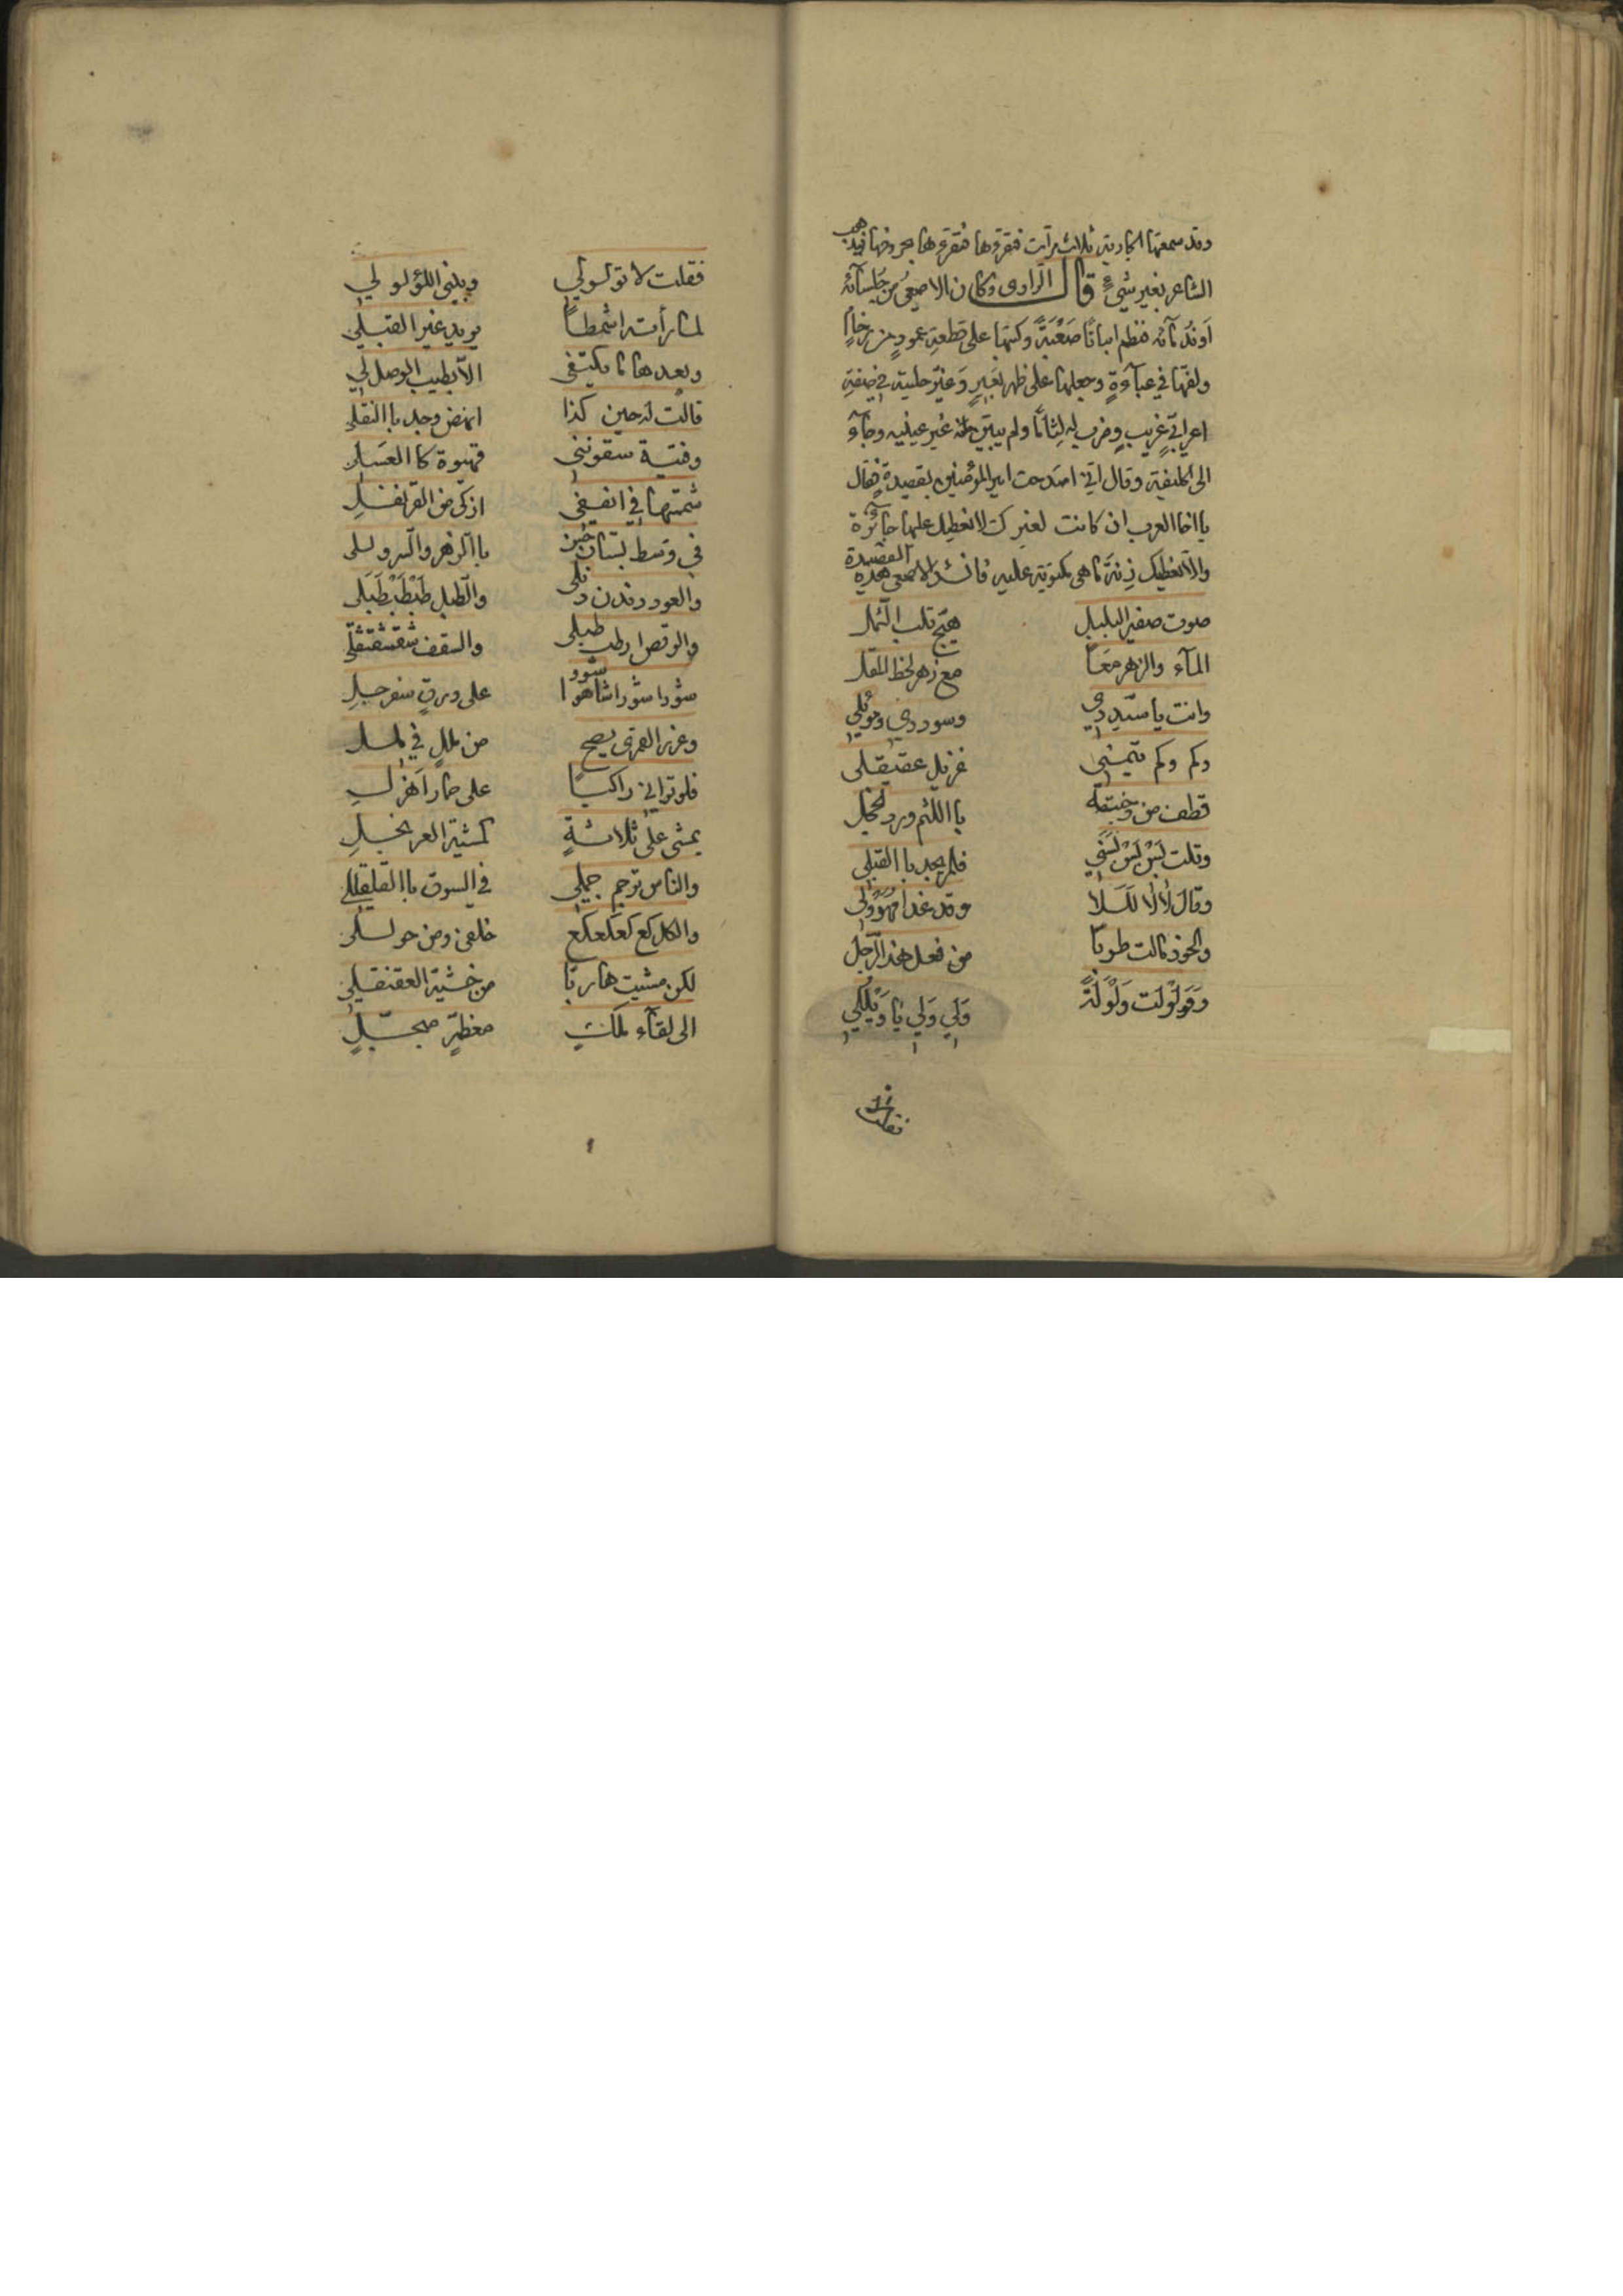 وقد سمعتها الجارية ثلاث مرات فتقرؤها فتقرؤها بحروفها فيذهب
الشاعر بغير شيءٍ قال الراوى وكان الاصمعي من جلسآئه
وندمآئه فنظم ابياتًا صَعْبَةً وكتبها على قطعة عمودٍ من رخامٍ
ولفّها في عبآءةٍ وجعلها على ظهر بَعيرٍ وغيّر حليته في صفة
اعرابيٍّ غريبٍ وضرب له لِثامًا ولم يبيّن منه غير عينيه وجآء
الى الخليفة وقال اني امتدحت امير المؤمنين بقصيدةٍ فقال
يا اخا العرب ان كانت لغيرك لا نعطيك عليها جآئزة
والا نعطيك زنة ما هى مكتوبة عليه فانشد الاصمعى هذه القصيدة
صوت صفير البلبل هيّج قلب الثمل
المآء والزهر معًا مع زهر لحظ المقل
وانت يا سيّددي وسوددي وموللي
وكم وكم تيّمنى غزيل عقيقلى
قطفت من وجنته باللثم ورد الخجل
وقلت بَسْ بَسْ بَسَني فلم يجد بالقبلى
وقال لا لا للَلا وقد غدا مهرولى
والخوذ مالت طربًا من فعل هذا الرّجل
وَوَلْوَلت وَلْوَلةً وَلي وَلي يا وَيْلَلي
فقلت لا
فقلت لا تولولي وبيّنى اللؤلو لي
لما رأته اشمطا يريد غير القبلي
وبعدها ما يكتفى الا بطيب الوصل لي
قالت له حين كذا انهض وجد باالنقلى
وفتية سقوننى قهوة كا العسلى
شممتها في انففى ازكى من القرنفل
في وسط بستان حبن باالزهر والسرو لى
والعود دندن دنلى والطبل طَبْطَبْ طَبَلى
والرقص ارطب طبلى والسقف شقشقشقلى
شوو شورا شورا شاهوا على ورق سفرجل
وغرد القمرى يصيح من مللٍ في مللِ
فلو ترانى راكبًا على حمار اهزلِ
يمشى على ثلاثةٍ كمشية العرنجلِ
والناس ترجم جملي في السوق باالقلقللي
والكل كع كعكعكع خلفى ومن حوللى
لكن مشيت هاربًا من خشية العقنقلي
الى لقآء ملكٍ معظمٍ مبجّلٍ